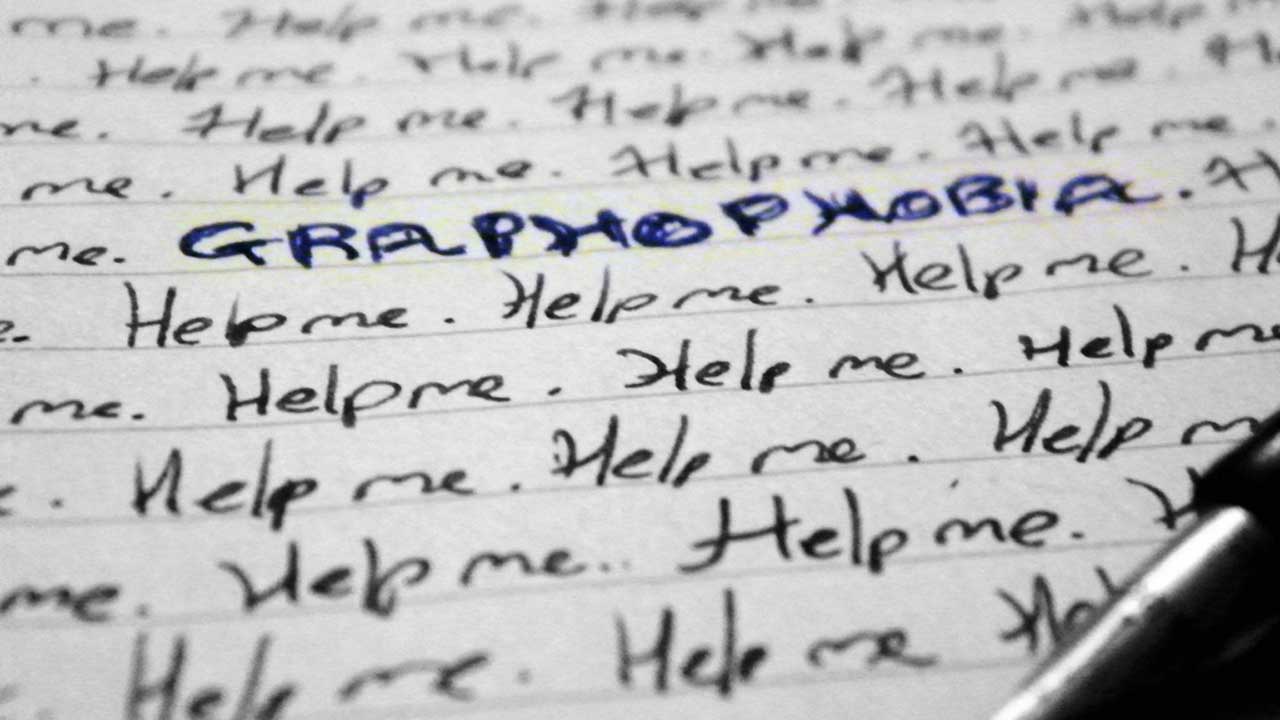 me. Help me. Help me.
. Help me. Help me. Help me. Help
me. Help me. Help me. Help me.
me. Help me. Help me. Help me.
me. GRAPHOPHOBIA. H
e. Help me. Help me. Help me. H
me. Help me. Help me. Help me
. Help me. Help me. Help m
me. Help me.. Help me. H
Help me. Help me Hel